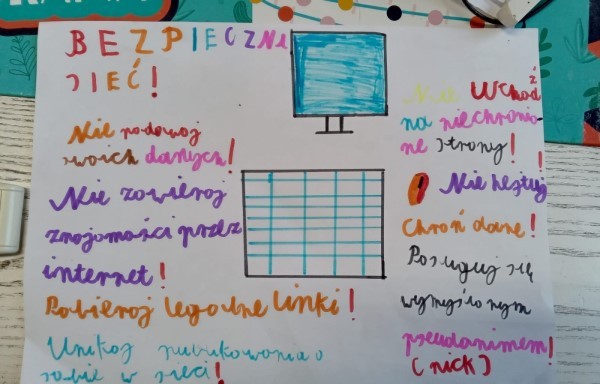 BEZPIECZNA
SIEĆ!
Nie podawaj
swoich danych!
Nie zawieraj
znajomości przez
internet!
Pobieraj legalne linki!
Unikaj publikowania o
sobie w sieci!
Nie wchodź
na niechronio-
ne strony!
! Nie hejtuj!
Chroń dane!
Posługuj się
wymyślonym
pseudonimem!
(nick)